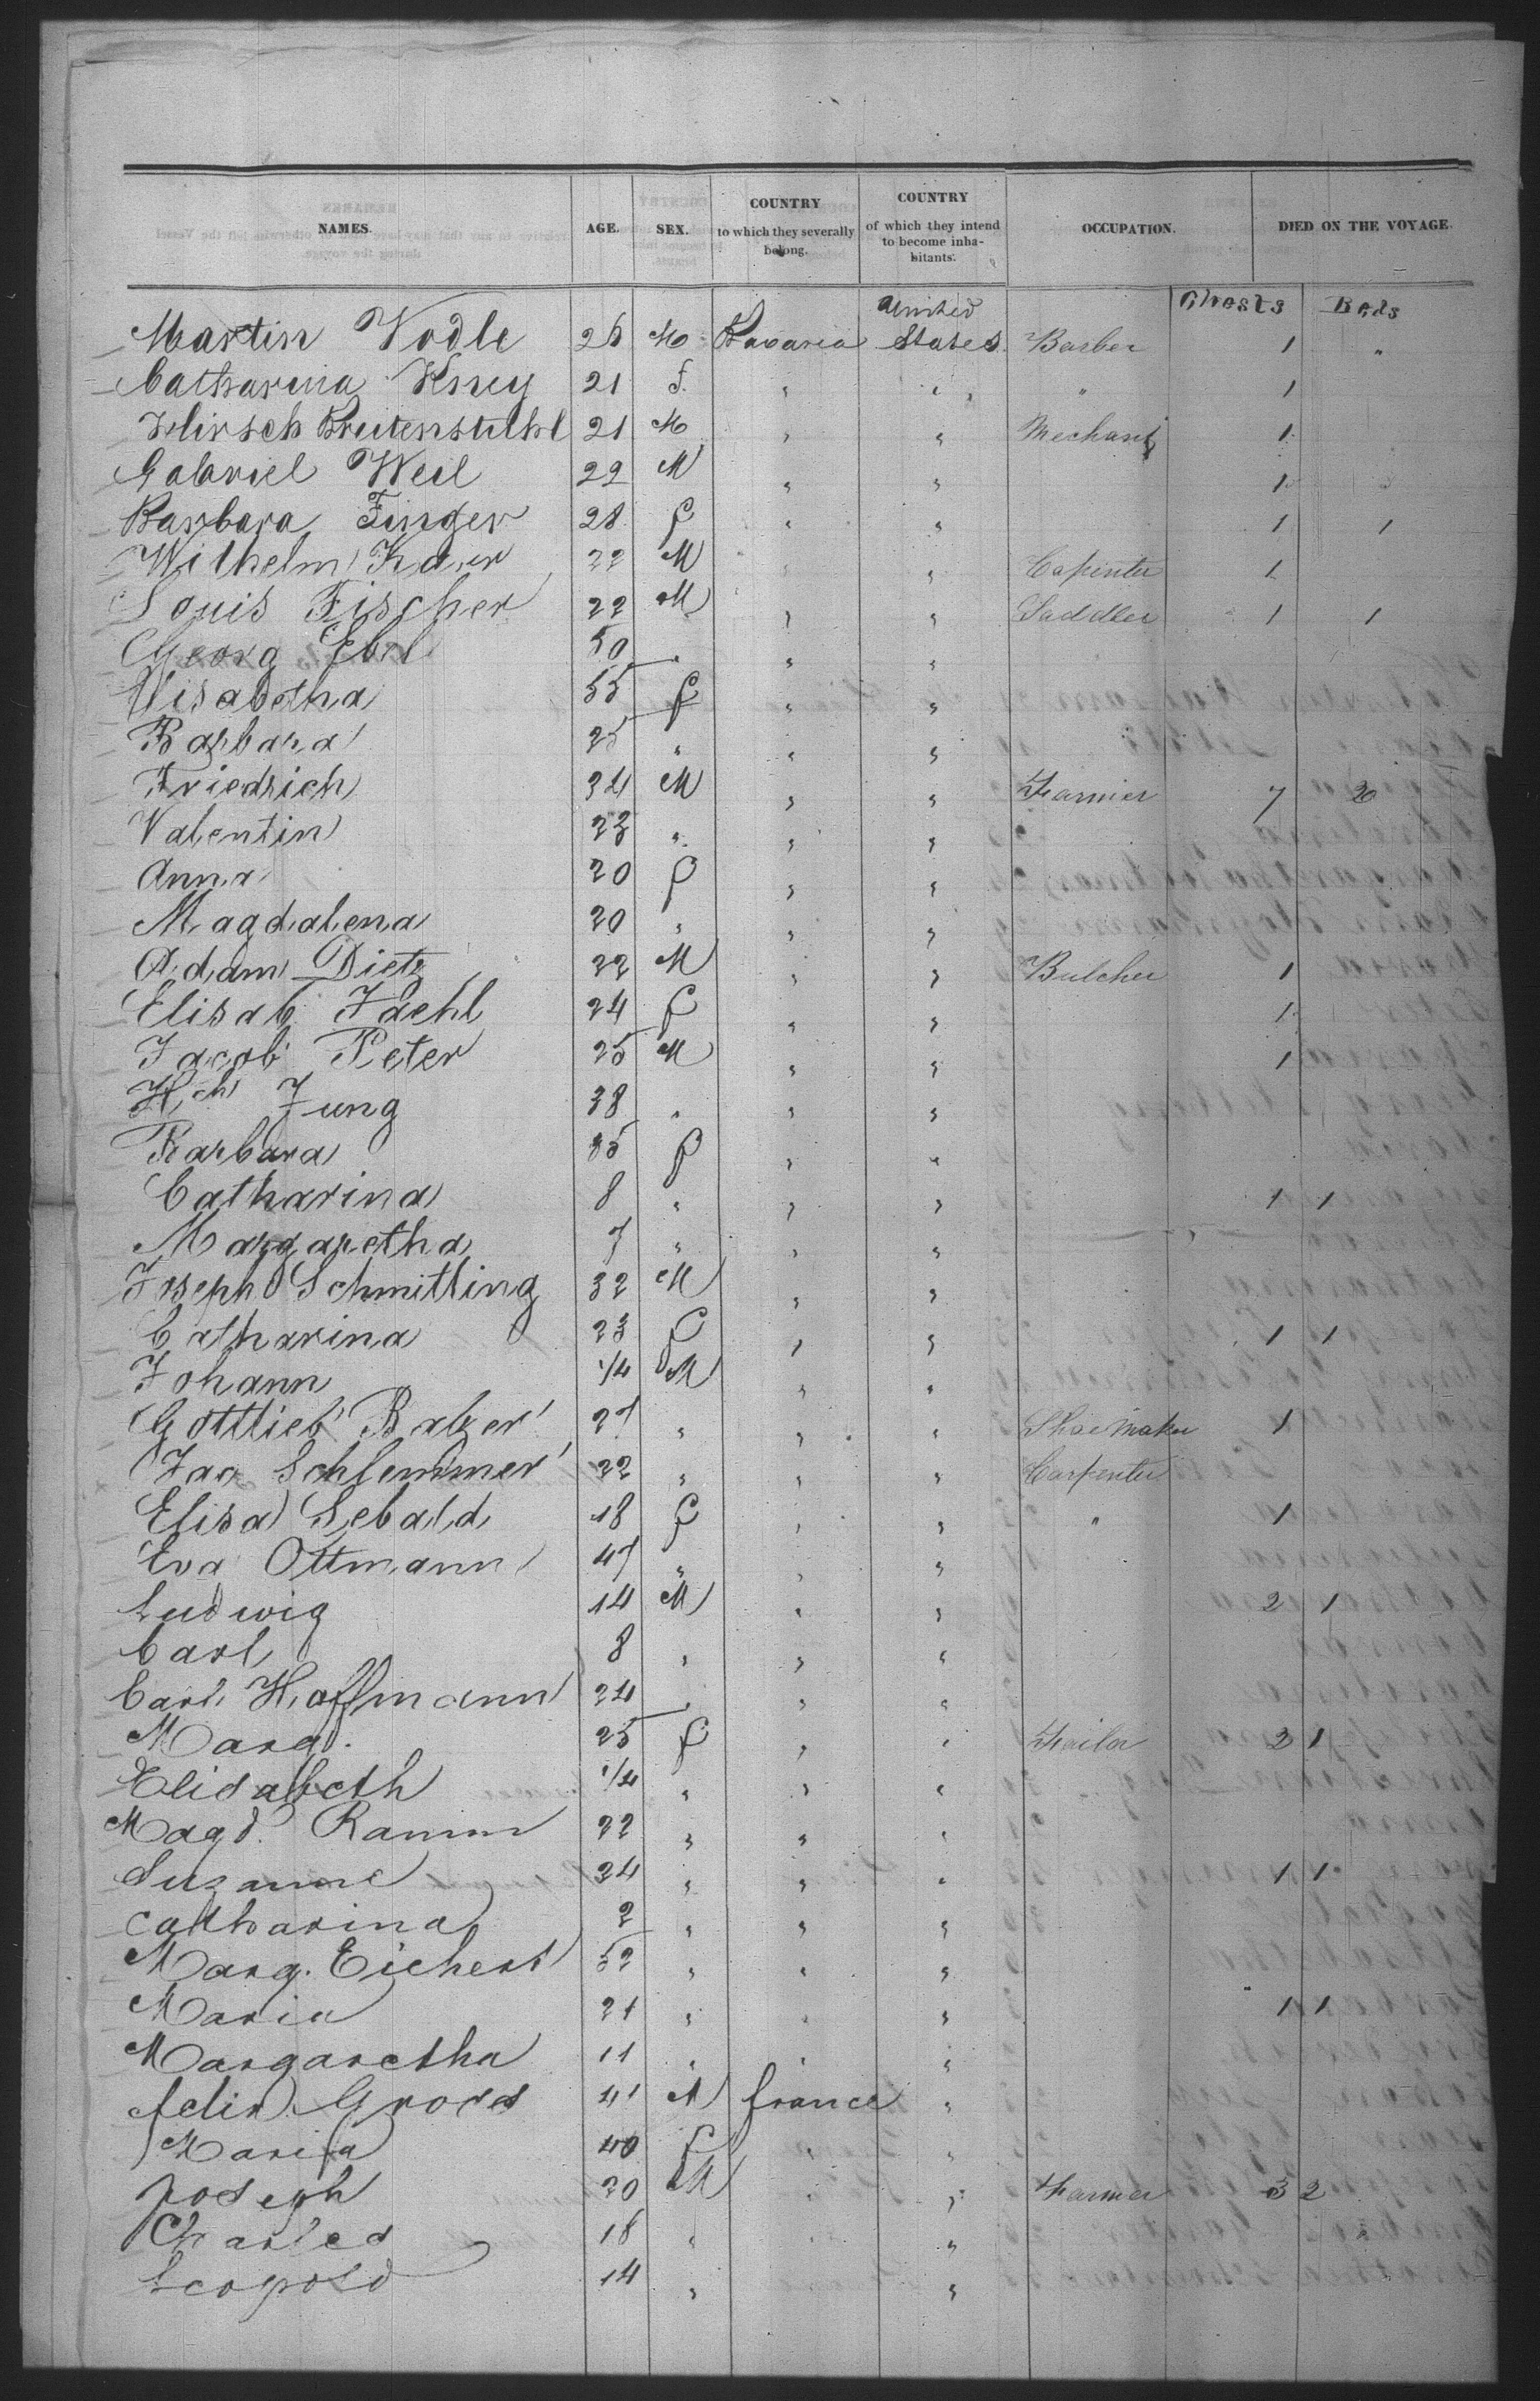 NAMES. AGE. SEX. COUNTRY to which they severally belong. COUNTRY of which they intend to become inhabitants. OCCUPATION. DIED ON THE VOYAGE.
Chests Beds
Martin Vodle 26 M Bavaria United States Barber 1 "
Catharina 21 f. " " " 1
Hirsch Breitenstuhl 21 M " " Mechant 1
Gabriel Weil 22 M " " 1
Barbara Finger 28 f " " 1 1
Wilhelm 22 M " " Capinter 1
Louis Fischer 22 M " " Saddler 1 1
Georg Ebel 50 " " "
Elisabetha 55 f " "
Barbara 25 " " "
Friedrich 34 M " " Farmer 7
Valentin 23 " " "
Anna 20 f " "
Magdalena 20 " " "
Adam Dietz 22 M " " Butcher 1
Elisab. Jaehl 24 f " " 1
Jacob Peter 25 M " " 1
Hch Jung 38 " " "
Barbara 35 f " "
Catharina 8 " " " 1 1
Margaretha 7 " " "
Joseph Schmitting 32 M " "
Catharina 23 f " " 1 1
Johann 1/4 M " "
Gottlieb Balzer 27 " " " Shoemaker 1
Jac Schlemmer 22 " " " Carpenter
Elisa Sebald 18 f " " " 1
Eva Ottmann 47 " " "
Ludwig 14 M " " 2 1
Carl 8 " " "
Carl Hoffmann 24 " " "
Marg. 25 f " " Tailor 2 1
Elisabeth 1/4 " " "
Magd. Ramm 22 " " "
Suzanne 24 " " " 1 1
Catharina 2 " " "
Marg. Eichert 52 " " "
Maria 21 " " " 1 1
Margaretha 11 " " "
Felix Gross 41 M france "
Maria 40 f " "
Joseph 20 M " " Farmer 3 2
Charles 18 " " "
Leopold 14 " "